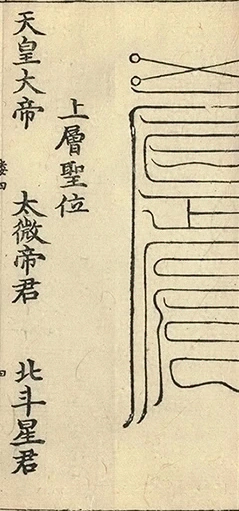 上層聖位
天皇大帝　太微帝君　北斗星君